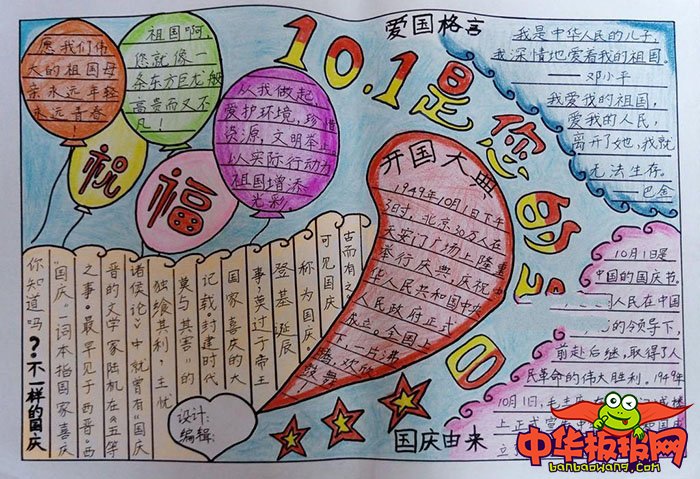 愿我们伟
大的祖国母
亲永远年轻
永远青春
！
祖国啊
您就像一
条东方巨龙般
高贵而又不
凡！
从我做起
爱护环境，珍惜
资源，文明举止
以实际行动为
祖国增添
光彩。
祝
福
10.1是您的生日
爱国格言
我是中华人民的儿子，
我深情地爱着我的祖国。
——邓小平
我爱我的祖国，
爱我的人民，
离开了她，我就
无法生存。
——巴金
开国大典
1949年10月1日下午
3时，北京30万人在
天安门广场上隆重
举行庆典，庆祝
华人民共和国中央
人民政府正式
成立。全国上
下一片沸
腾，欢欣
鼓舞！
10月1日是
中国的国庆节。
人民在中国
的领导下，
前赴后继，取得了人
民革命的伟大胜利。1949年
10月1日，毛主席在
城楼
上正式宣
国庆由来
你知道吗？不一样的国庆
“国庆”一词本指国家喜庆
之事。最早见于西晋。西
晋的文学家陆机在《五等
诸侯论》中就曾有“国庆
独飨其利，主忧
莫与其害”的
记载。封建时代
国家喜庆的大
事，莫过于帝王
登基诞辰
称为国庆
可见国庆
古而有之
设计：
编辑：
中华板报网
banbaowang.com